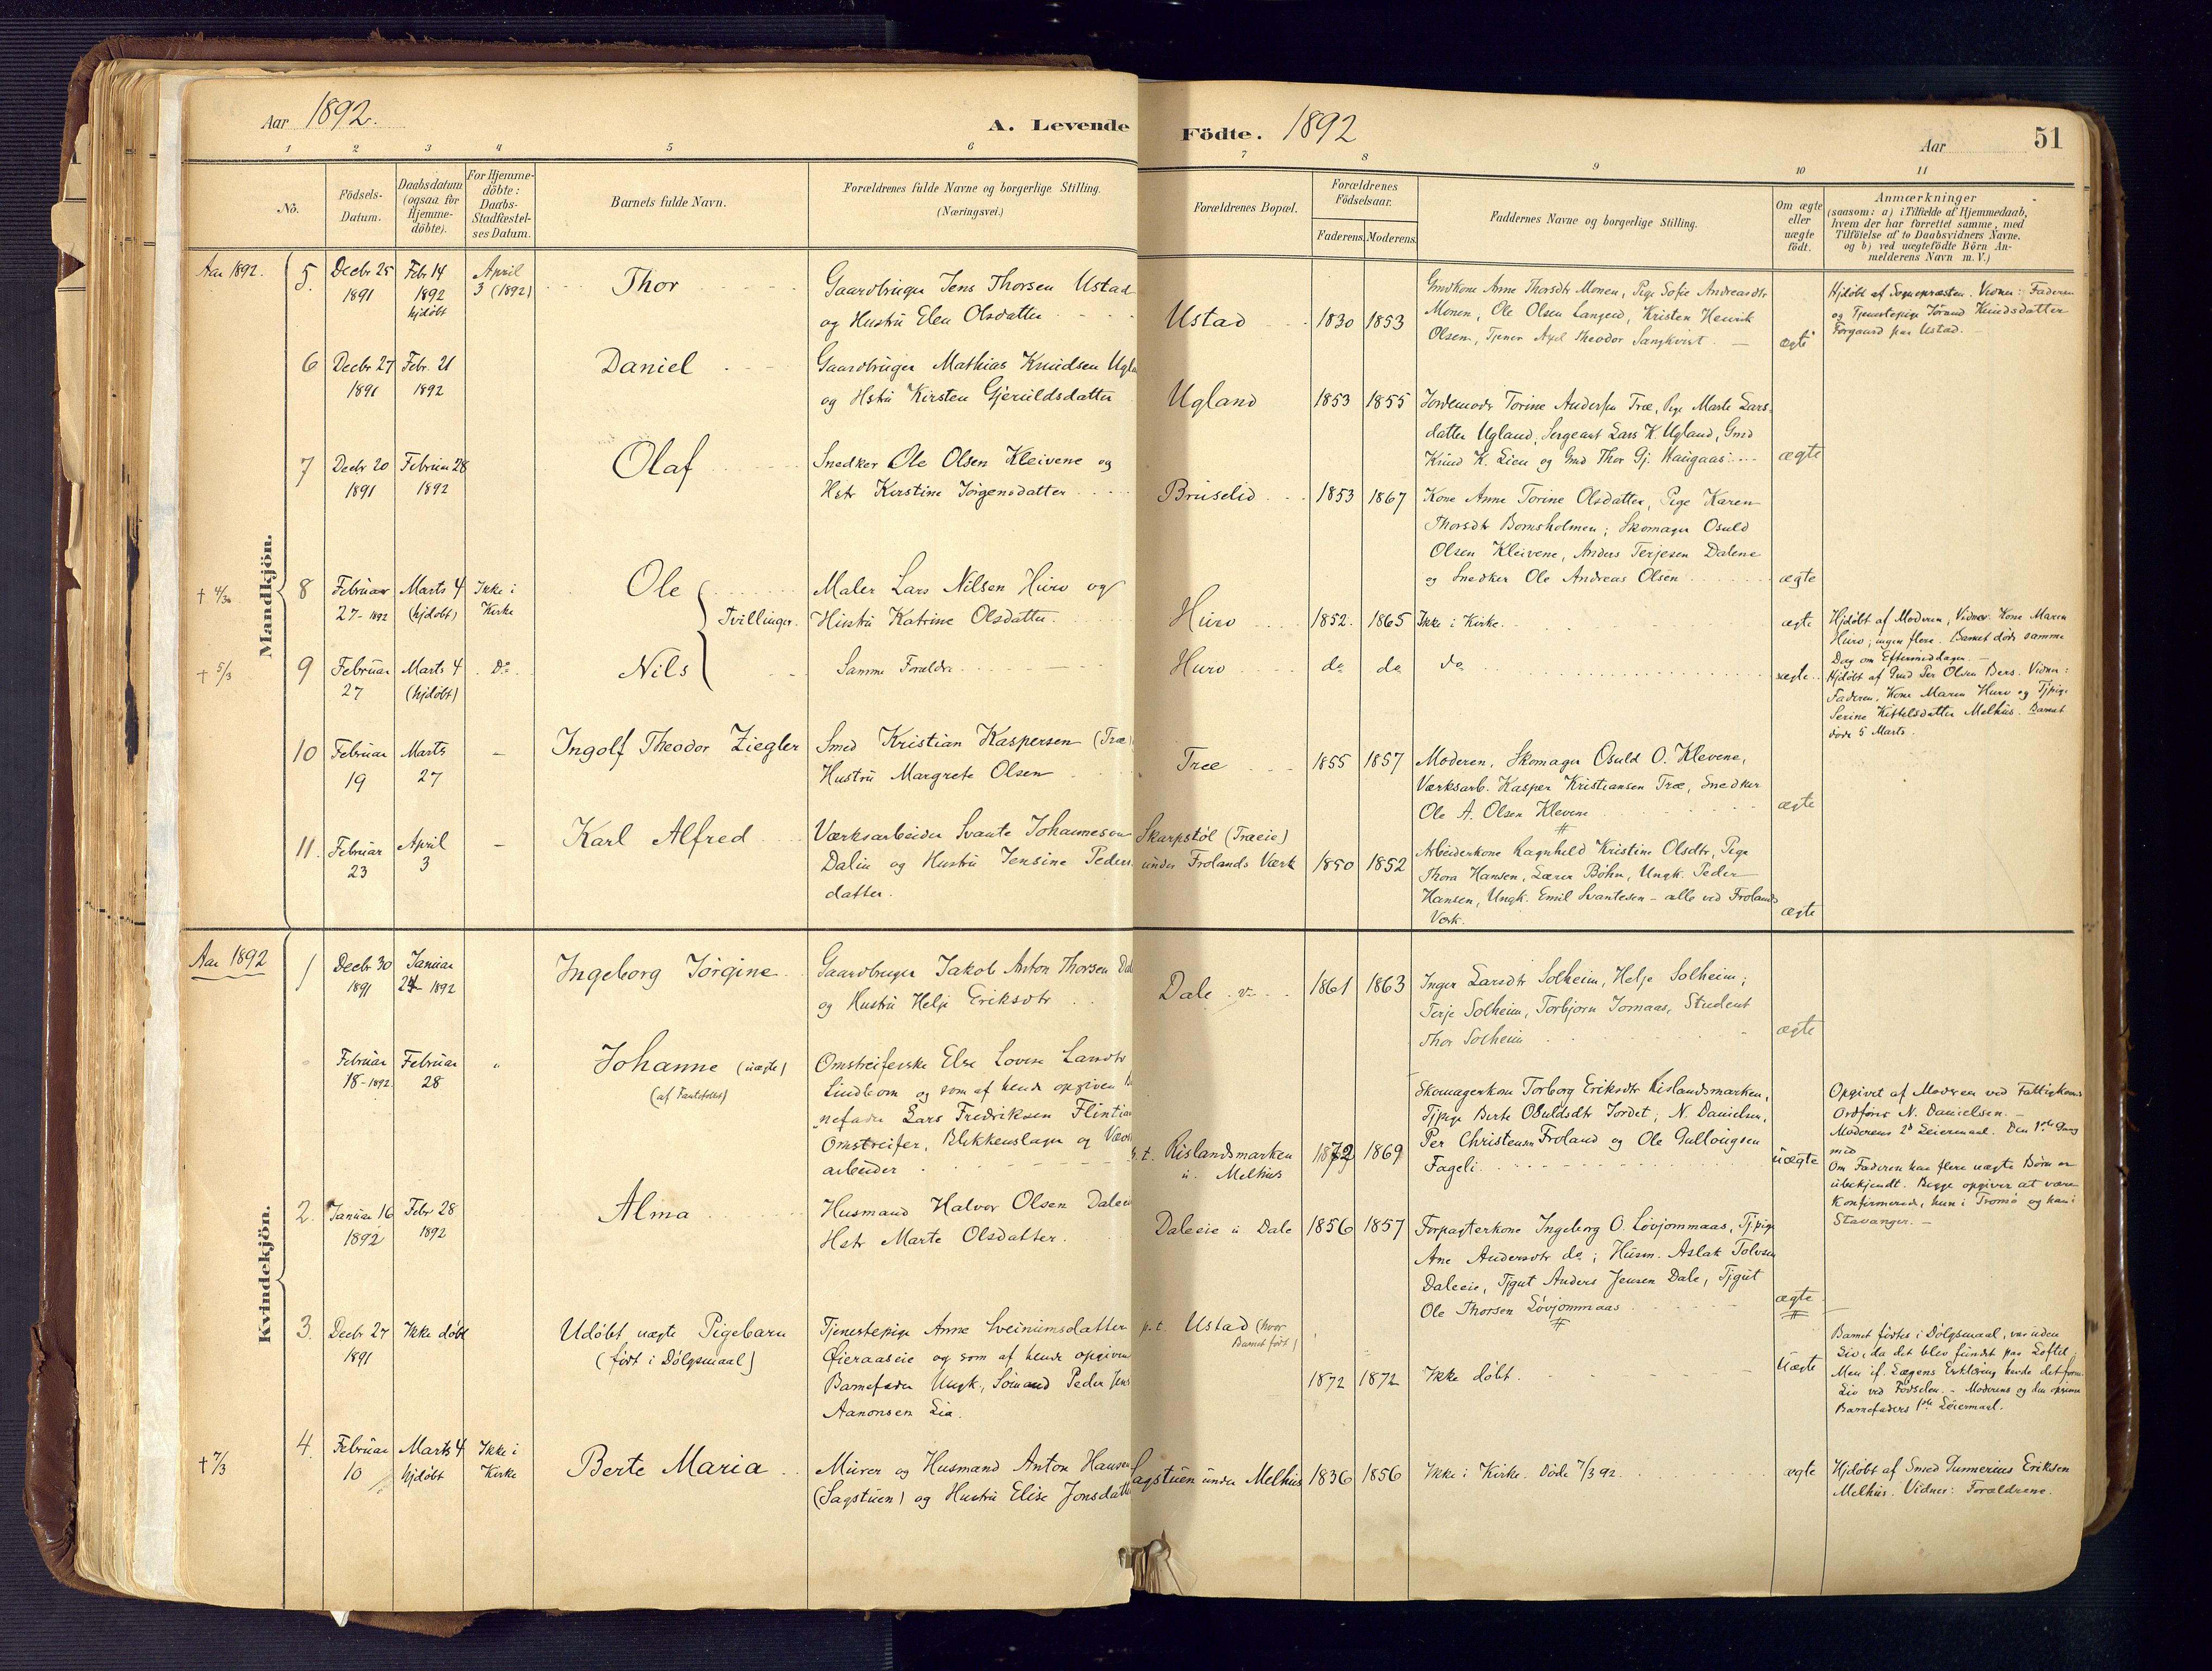 Aar 1892.
A. Levende
Födte. 1892
Aar
51
1 2 3 4 5 6
7 8 9 10 11
No.
Födsels-
Datum.
Daabsdatum
(ogsaa for
Hjemme-
döbte).
For Hjemme-
döbte:
Daabs-
Stadfæstel-
ses Datum.
Barnets fulde Navn.
Forældrenes fulde Navne og borgerlige Stilling.
(Næringsvei.)
Forældrenes Bopæl.
Forældrenes
Födselsaar.
Faderens. Moderens.
Faddernes Navne og borgerlige Stilling.
Om ægte
eller
uægte
födt.
Anmærkninger
(saasom: a) i Tilfælde af Hjemmedaab,
hvem der har forrettet samme, med
Tilföielse af to Daabsvidners Navne.
og b) ved uægtefödte Börn An-
melderens Navn m. V.)
Mandkjön.
Aar 1892.
5.
Decbr 25
1891
Febr 14
1892
hjdøbt
April
3 (1892)
Thor
Gaardbruger Jens Thorsen Ustad
og Hustru Elen Olsdatter
Ustad
1830 1853
Gmdkone Anne Thorsdtr Monen, Pige Sofie Andreasdtr
Monen, Ole Olsen Langerd, Kristen Henrik
Olsen, Tjener Axel Theodor Sangkvist.
ægte
Hjdøbt af Sognepræsten. Vidner: Faderen
og Tjenestepige Jørand Knudsdatter
Torgaard paa Ustad.
6
Decbr 27
1891
Febr. 21
1892
Daniel
Gaardbruger Mathias Knudsen Ugla
og Hstru Kirsten Gjeruldsdatter
Ugland
1853 1855
Jordemodr Torine Andersen Træ, Pige Marte Lars-
datter Ugland, Sergeant Lars K. Ugland, Gmd
Knud K. Lien og Gmd Thor Gj. Haugaas
ægte
7
Decbr 20
1891
Februar 28
1892
Olaf
Snedker Ole Olsen Kleivene og
Hstr Kirstine Jørgensdatter
Bruselid
1853 1867
Kone Anne Torine Olsdatter, Pige Karen
Thorsdtr Bomsholmen; Skomager Osuld
Olsen Kleivene, Anders Terjesen Dalene
og Snedker Ole Andreas Olsen
ægte
† 4/3
8
Februar
27-1892
Marts 4
(hjdøbt)
Ikke i
Kirke
Ole
Tvillinger.
Maler Lars Nilsen Hurv og
Hustru Katrine Olsdatter.
Hurv
1852. 1865
Ikke i Kirke.
ægte
Hjdøbt af Moderen, Vidner Kone Maren
Hurv; ingen flere. Barnet døde samme
Dag om Eftermiddagen.
† 5/3
9
Februar
27
Marts 4
(hjdøbt)
Do
Nils
Samme Forældre
Hurv
do do do
ægte
Hjdøbt af Gmd Per Olsen Bers. Vidner:
Faderen, Kone Maren Hurv og Tjpige
Serine Kittelsdatter Melhus. Barnet
døde 5 Marts.
10
Februar
19
Marts
27
–
Ingolf Theodor Ziegler
Smed Kristian Kaspersen (Træ)
Hustru Margrete Olsen
Træ
1855 1857
Moderen, Skomager Osuld O. Klevene,
Værksarb. Kasper Kristiansen Træ, Snedker
Ole A. Olsen Klevene
ægte
11.
Februar
23
April
3
–
Karl Alfred
Værksarbeider Svante Johanneson
Dalin og Hustru Jensine Peders
datter.
Skarpstøl (Træeie)
under Frolands Værk
1850 1852
Arbeiderkone Ragnhild Kristine Olsdtr, Pige
Thora Hansen, Lærer Bøhn, Ungk. Peder
Hansen, Ungk. Emil Svantesen – alle ved Frolands
Værk.
ægte
Kvindekjön.
Aar 1892
1
Decbr 30
1891
Januar
24 1892
Ingeborg Jørgine
Gaardbruger Jakob Anton Thorsen Dal
og Hustru Helje Eriksdtr
Dale
1861 1863
Inger Larsdtr Solheim, Helje Solheim;
Terje Solheim, Torbjørn Jomaas, Student
Thor Solheim
ægte
Februar
18-1892
Februar
28
Johanne (uægte)
(af Tantefolket)
Omstreiferske Else Lovise Larsdtr
Lindbom og som af hende opgiven B
nefader Lars Fredriksen Flintian
Omstreifer, Blikkenslager og Værk
arbeider
p. t. Rislandsmarken
u. Melhus
1872 1869
Skomagerkone Torborg Eriksdtr Rislandsmarken,
Tjpige Berte Osuldsdtr Jordet; N. Danielsen,
Per Christensen Froland og Ole Gulloigsen
Fageli.
uægte
Opgivet af Moderen ved Fattigkoms
Ordfører N. Danielsen.
Moderens 2d Leiermaal. Den 1ste Gang
med
Om Faderen har flere uægte Børn er
ubekjendt. Begge opgiver at være
Konfirmerede, hun i Tromsø og han i
Stavanger.
2.
Januar 16
1892
Febr 28
1892
Alma
Husmand Halvor Olsen Daleei
Hstr Marte Olsdatter.
Daleeie u Dale
1856 1857
Forpagterkone Ingeborg O. Løvjommaas, Tjpige
Ane Andersdtr do; Husm. Aslak Tolvsen
Daleeie, Tjgut Anders Jensen Dale, Tjgut
Ole Thorsen Løvjommaas
ægte
3.
Decbr 27
1891
Ikke døbt
Udøbt uægte Pigebarn
(født i Dølgsmaal)
Tjenestepige Anne Sveinumsdatter
Øieraaseie og som af hende opgiven
Barnefader Ungk., Sømand Peder Jens
Aanonsen Lia.
p. t. Ustad (hvor
Barnet født)
1872 1872
Ikke døbt.
Uægte
Barnet fødtes i Dølgsmaal, var uden
Liv, da det blev fundet paa Loftet.
Men if. Lægens Erklæring havde det
Liv ved Fødselen. – Moderens og den opgivne
Barnefaders 1ste Leiermaal.
† 7/3
4.
Februar
10
Marts 4
hjdøbt
Ikke i
Kirke
Berte Maria
Murer og Husmand Anton Hansen
(Sagstuen) og Hustru Elise Jonsdatt
Sagstuen under Melhus
1836 1856
Ikke i Kirke. Døde 7/3 92.
ægte
Hjdøbt af Smed Gunnerius Eriksen
Melhus. Vidner: Forældrene.